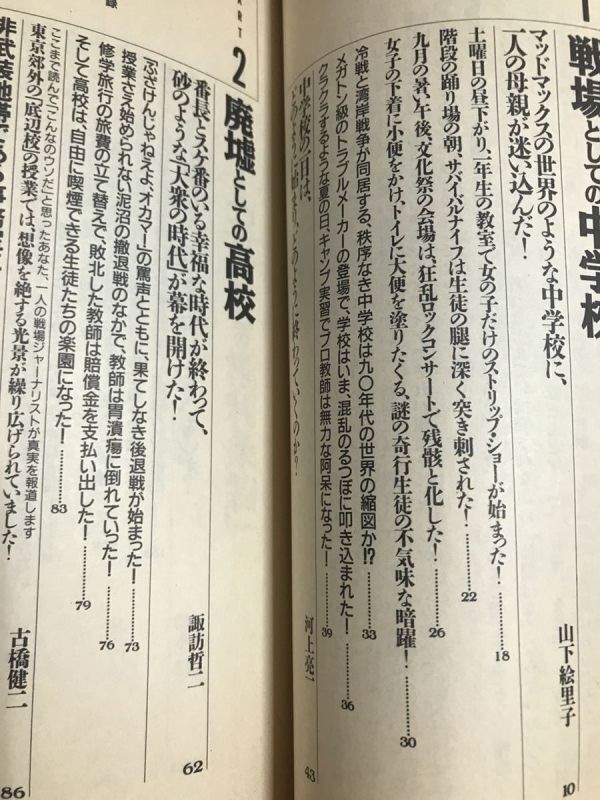 戦場としての中学校
マッドマックスの世界のような中学校に、
一人の母親が迷い込んだ！
山下絵里子 10
土曜日の昼下がり、一年生の教室で女の子だけのストリップ・ショーが始まった！ 18
階段の踊り場の朝、サバイバルナイフは生徒の腿に深く突き刺された！ 22
九月の暑い午後、文化祭の会場は、狂乱ロックコンサートで残骸と化した！ 26
女子の下着に小便をかけ、トイレに大便を塗りたくる、謎の奇行生徒の不気味な暗躍！ 30
冷戦と湾岸戦争が同居する、秩序なき中学校は九〇年代の世界の縮図か!? 33
メガトン級のトラブルメーカーの登場で、学校はいま、混乱のるつぼに叩き込まれた！ 36
クラクラするような夏の日、キャンプ実習でプロ教師は無力な阿呆になった！ 39
中学校の一日は、
どのように始まり、どのように終わっていくのか？
河上亮一 43
録
ART
2
廃墟としての高校
番長とスケ番のいる幸福な時代が終わって、
砂のような「大衆の時代」が幕を開けた！
諏訪哲二 62
「ふざけんじゃねえよ、オカマー」の罵声とともに、果てしなき後退戦が始まった！ 73
授業さえ始められない泥沼の撤退戦のなかで、教師は胃潰瘍に倒れていった！ 76
修学旅行の旅費の立て替えで、敗北した教師は賠償金を支払い出した！ 79
そして高校は、自由に喫煙できる生徒たちの楽園になった！ 83
ここまで読んで「こんなのウソだ」と思ったあなた、一人の戦場ジャーナリストが真実を報道します
東京郊外の「底辺校」の授業では、想像を絶する光景が繰り広げられていました！
古橋健二 86